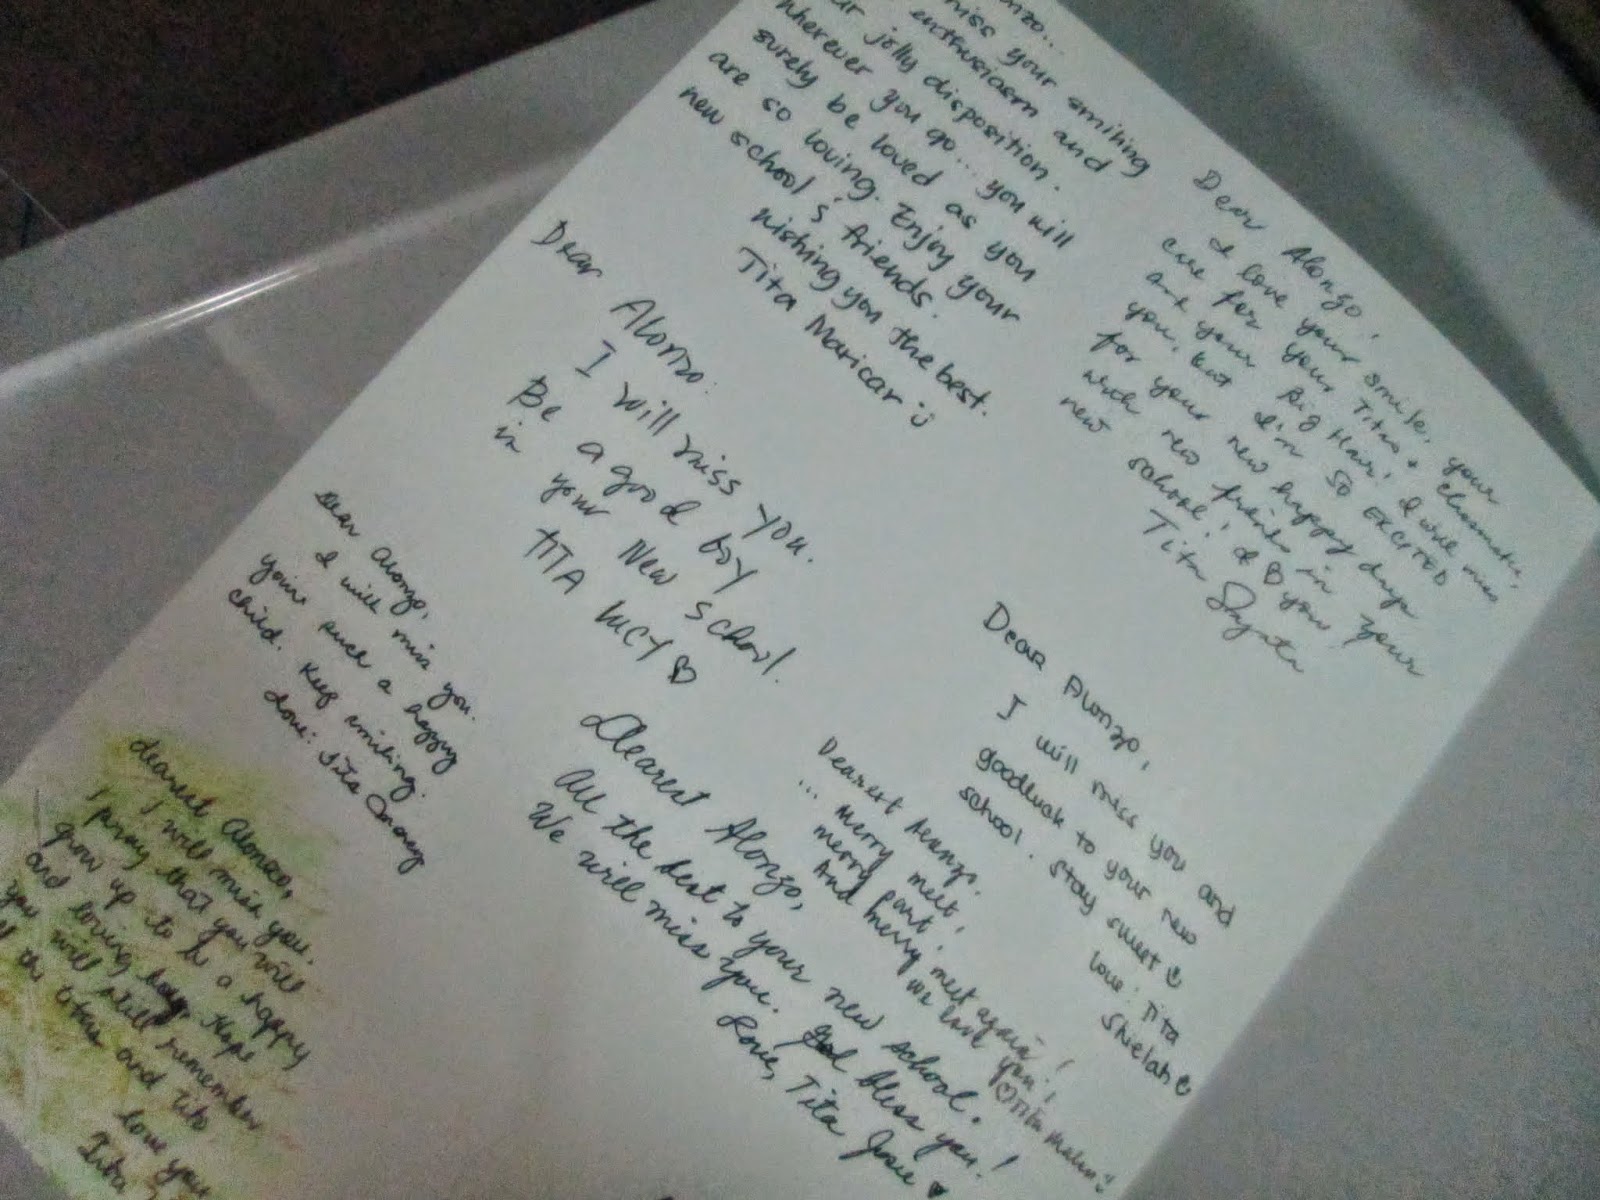 miss your smiling
enthusiasm and
jolly disposition.
wherever you go... you will
surely be loved as you
are so loving. Enjoy your
new school & friends.
Wishing you the best.
Tita Maricar
Dear Alonzo,
I love your smile, your
care for your Titas & classmates,
and your Big Hair! I will miss
you, but I'm SO EXCITED
for your new happy days
with new friends in your
new school! I ♡ you!
Tita
Dear Alonzo:
I will miss you.
Be a good boy
in your New School!
TITA MCY ♡
Dear Alonzo,
I will miss you.
You're such a happy
child. Keep smiling.
Love: Tita
Dear Alonzo,
I will miss you and
goodluck to your new
school. Stay sweet ☺
Love: Tita
Shielah ☺
Dearest Alonzo,
... Merry meet,
merry part,
And merry meet again!
We love you!
♡ Tita
Dearest Alonzo,
All the best to your new school.
We will miss you. God bless you!
Love, Tita Josie ♥
dearest Alonzo,
I will miss you.
I pray that you will
grow up to be a happy
and loving boy. Hope
you will still remember
all the titas and tito.
love you
Tita